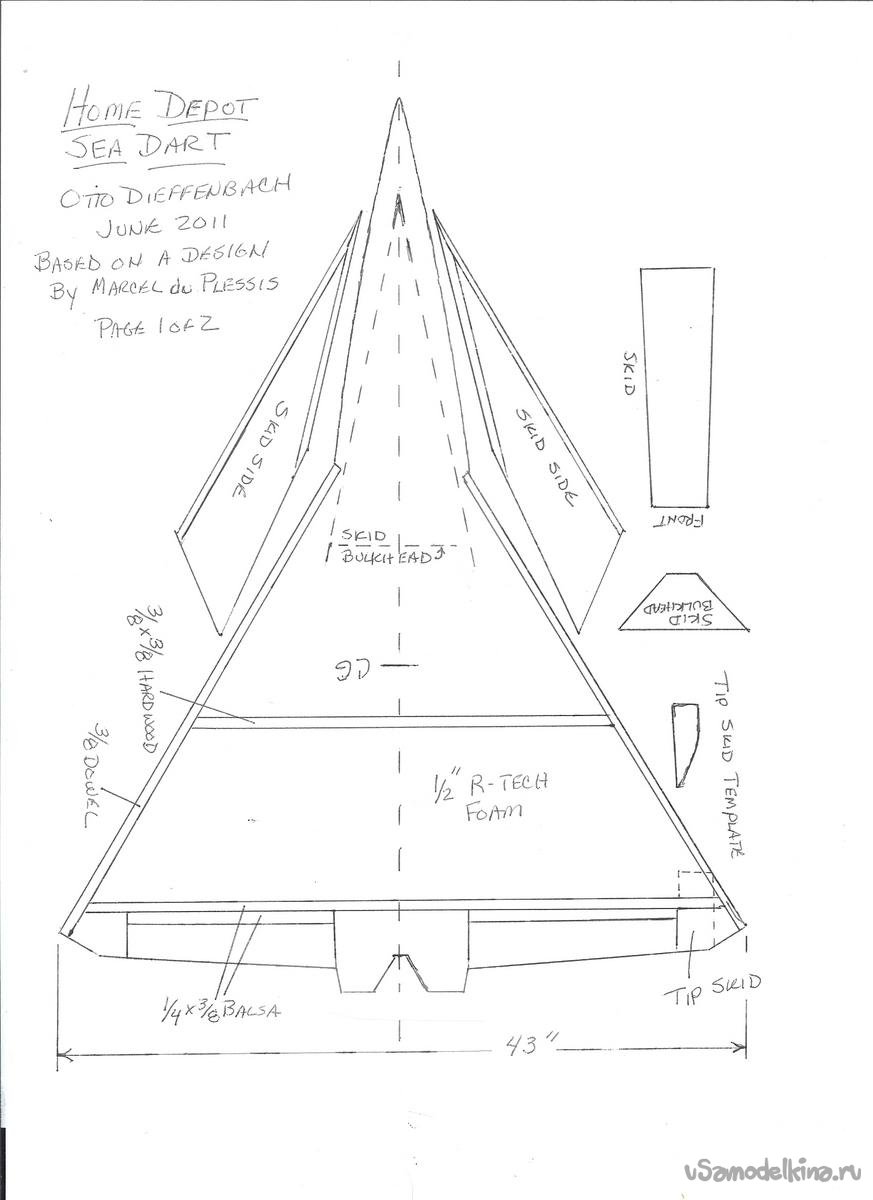 HOME DEPOT
SEA DART
OTTO DIEFFENBACH
JUNE 2011
BASED ON A DESIGN
By MARCEL du PLESSIS
PAGE 1 OF 2
SKID SIDE
SKID SIDE
SKID
FRONT
SKID
BULKHEAD
SKID
BULKHEAD
CG
3/8 x 3/8 HARDWOOD
3/8 DOWEL
1/2" R-TECH
FOAM
TIP SKID TEMPLATE
TIP SKID
1/4 x 3/8 BALSA
43"
uSamodelkina.ru